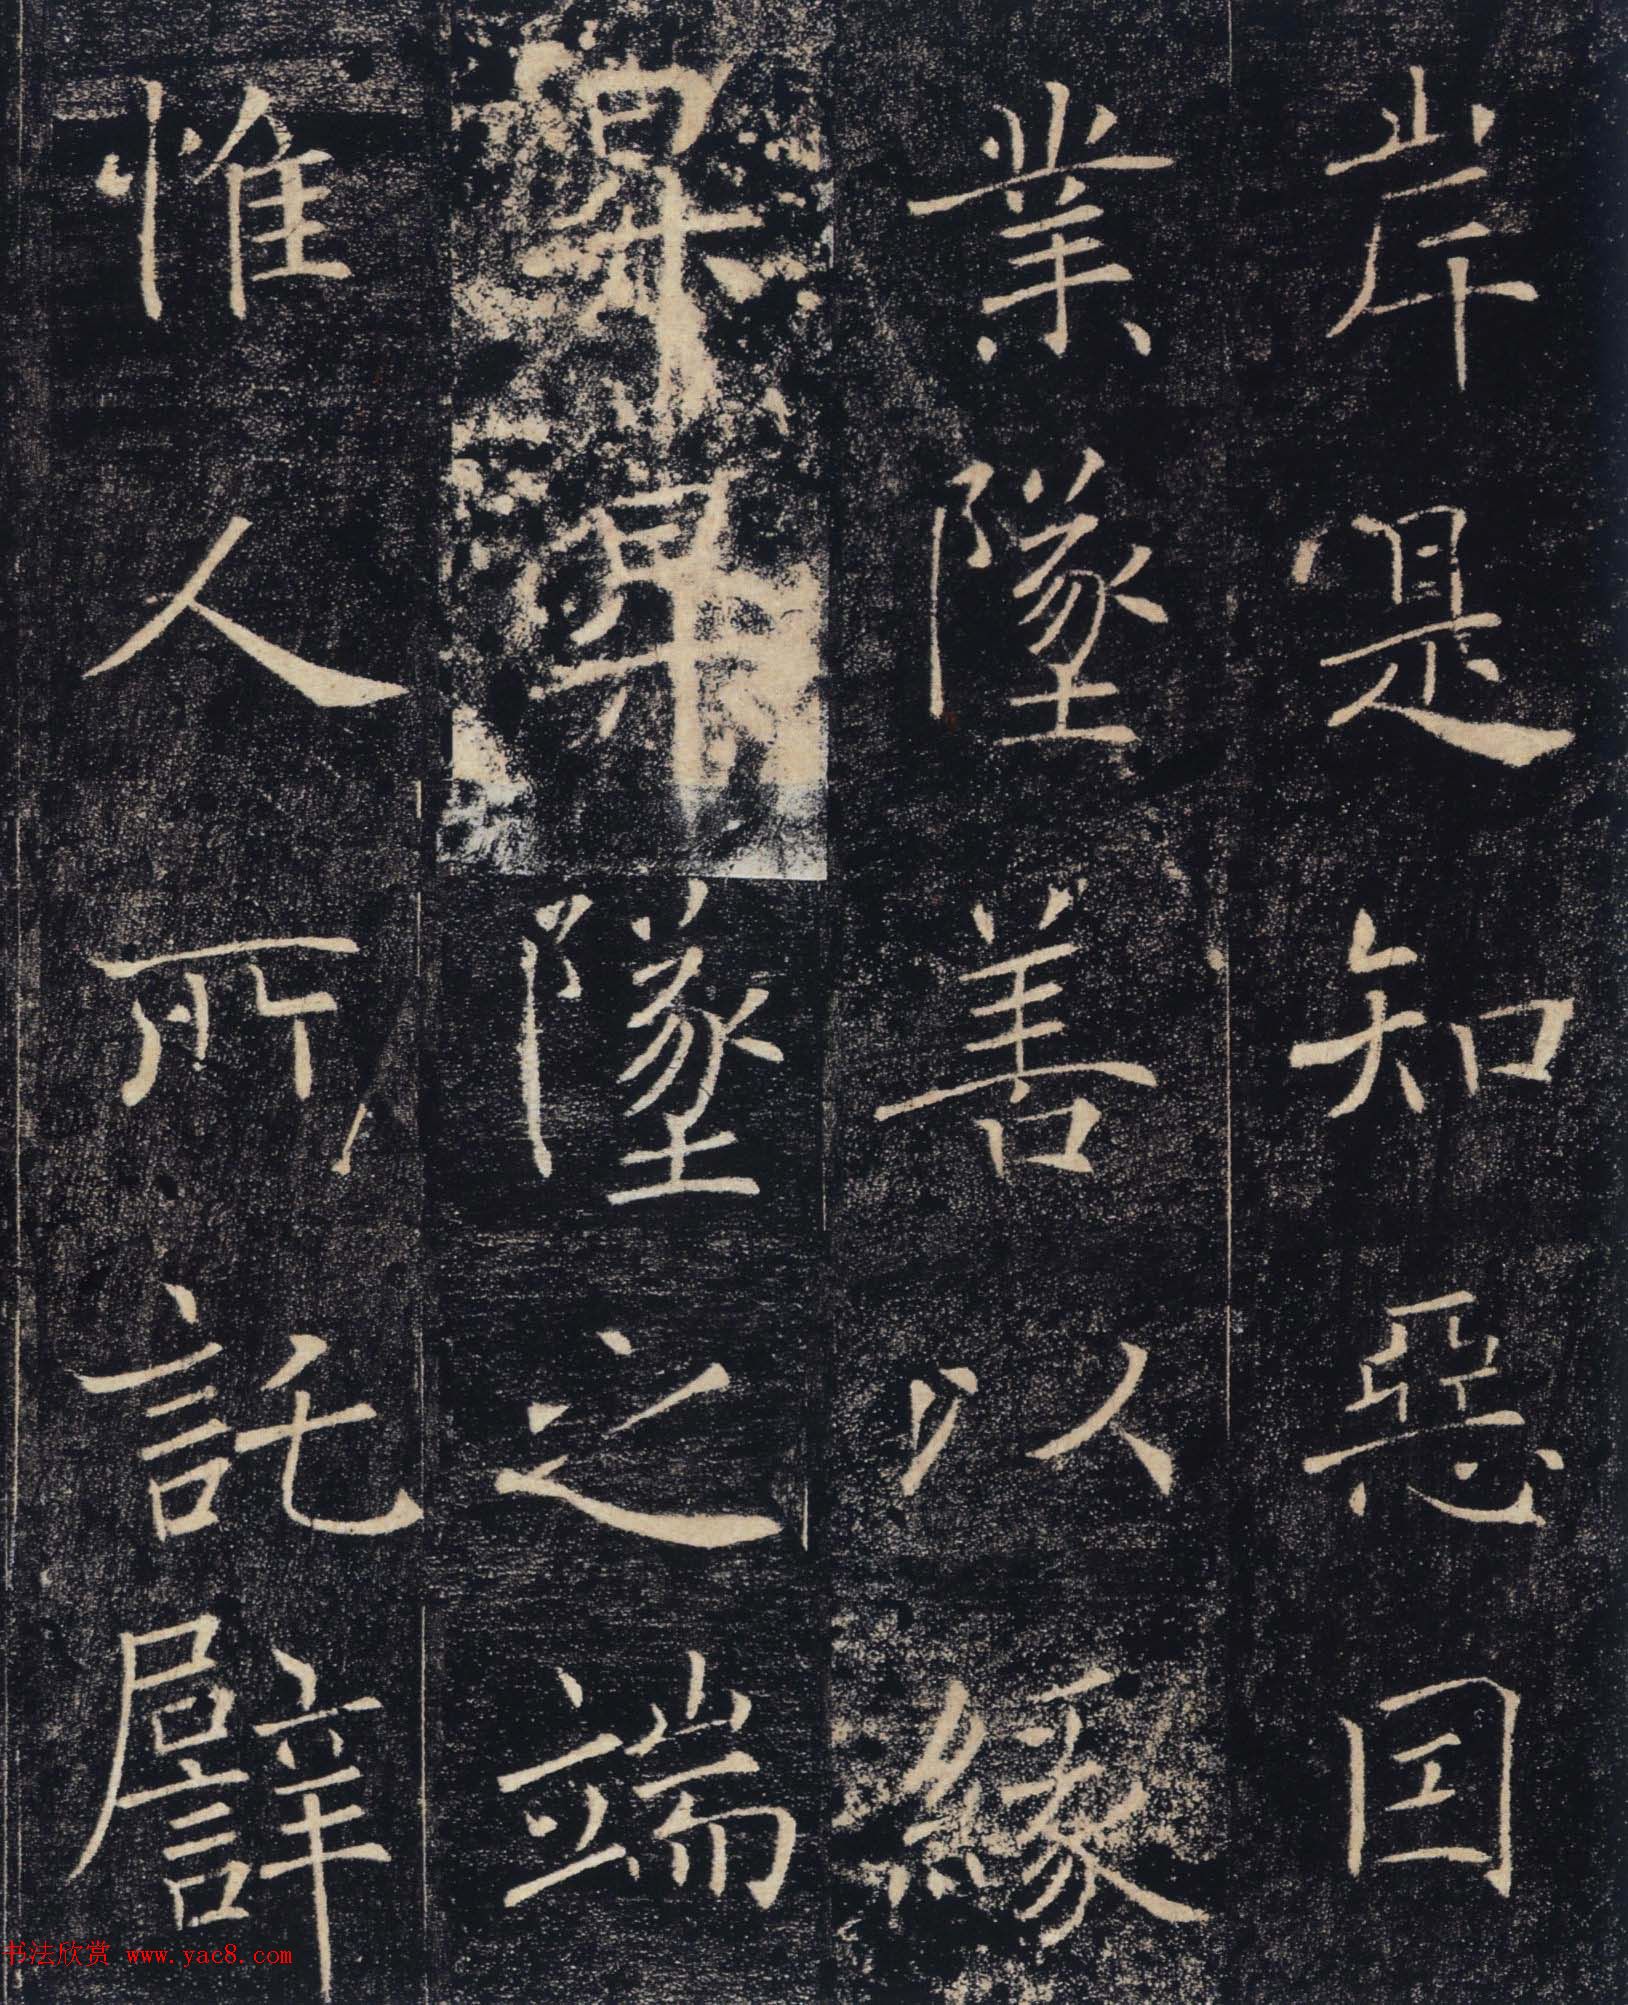 岸是知惡囙
業墜善以緣
昇昇墜之端
惟人所託譬
书法欣赏 www.yac8.com